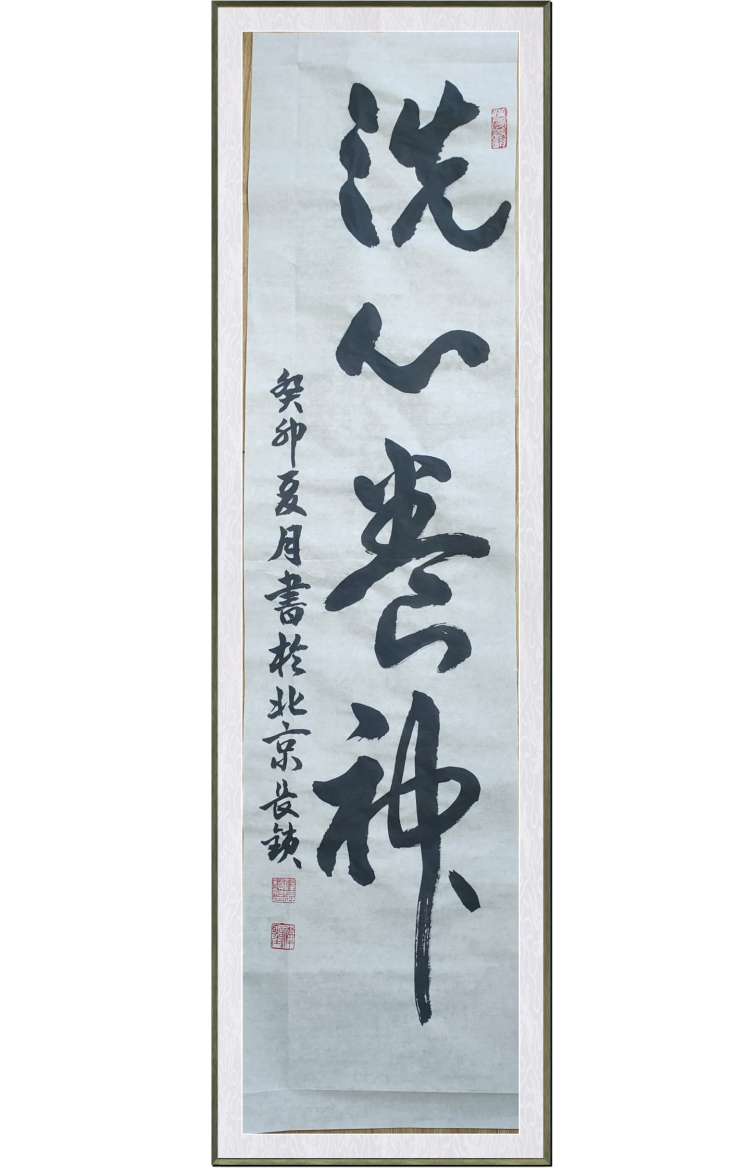 洗心養神
癸卯夏月書於北京長